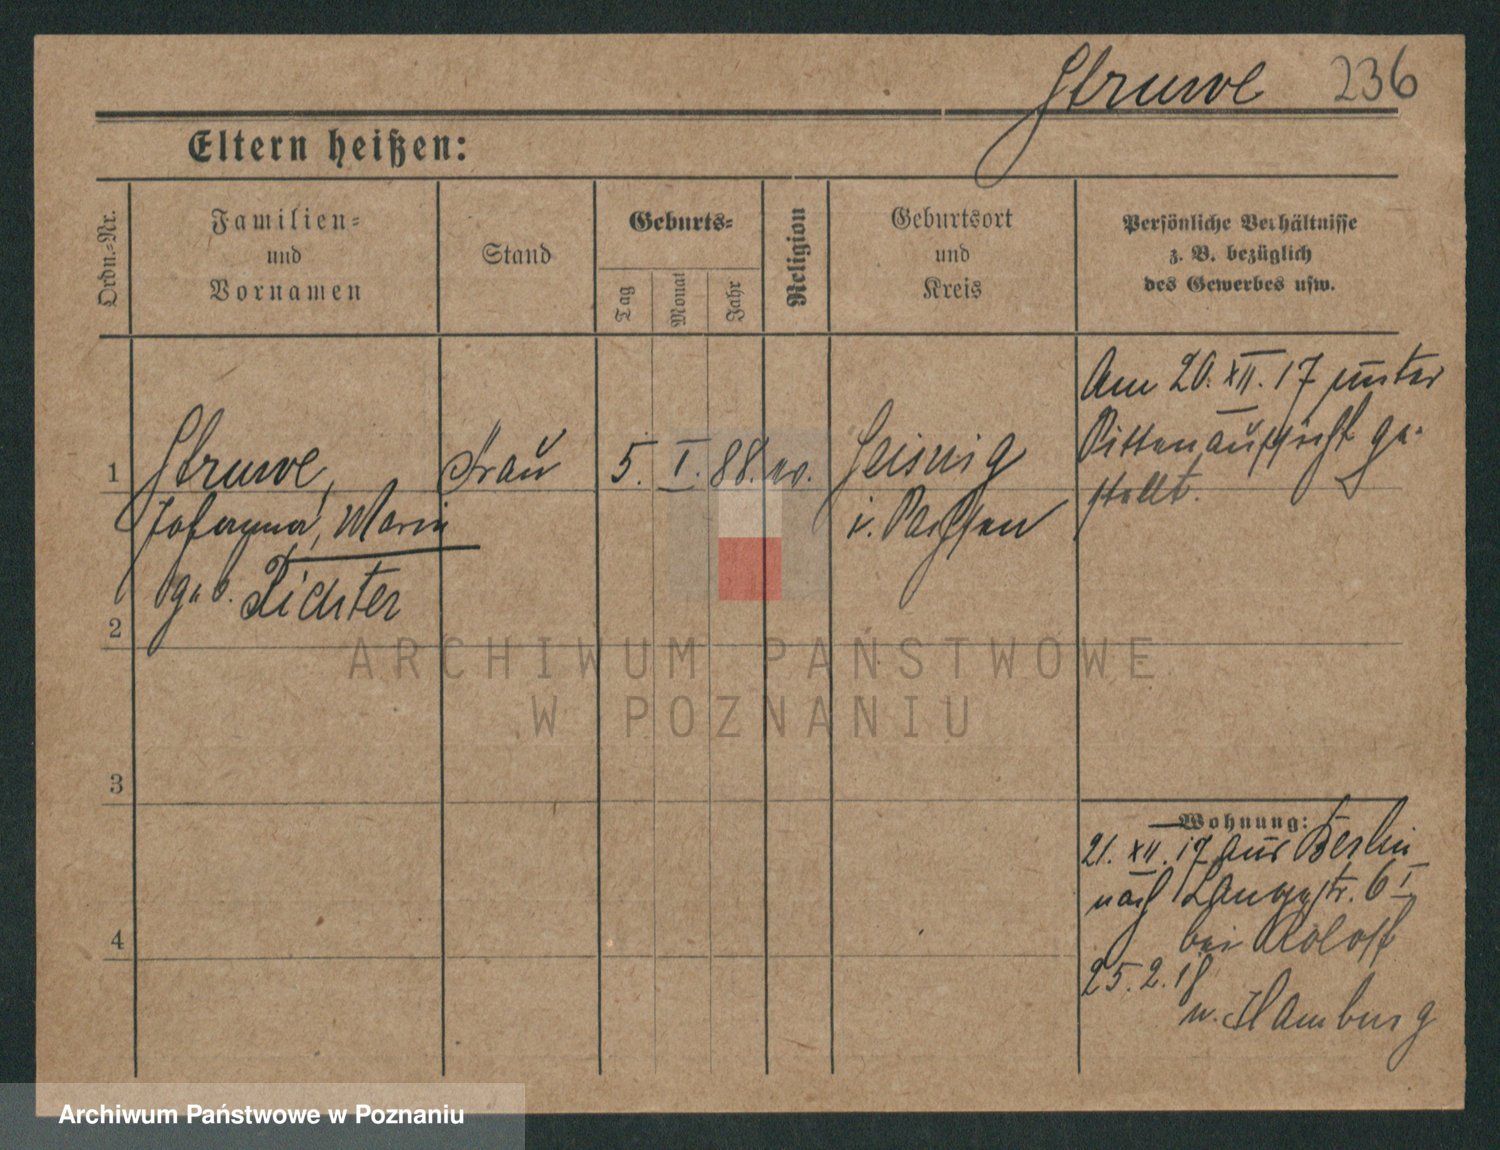 Struwe 236
Eltern heißen:
Ordn.-Nr.
Familien-
und
Vornamen
Stand
Geburts-
Tag
Monat
Jahr
Religion
Geburtsort
und
Kreis
Persönliche Verhältnisse
z. B. bezüglich
des Gewerbes usw.
Am 20. XII. 17 unter
Sittenaufsicht ge-
stellt.
1 Struwe, Frau 5. I. 88. ev. Leisnig
Johanna, Marie i. Sachsen
geb. Richter
2
3
4
Wohnung:
21. XII. 17 aus Berlin
nach Langstr. 6 I
bei Roloff
25. 2. 18
n. Hamburg
ARCHIWUM PAŃSTWOWE
W POZNANIU
Archiwum Państwowe w Poznaniu